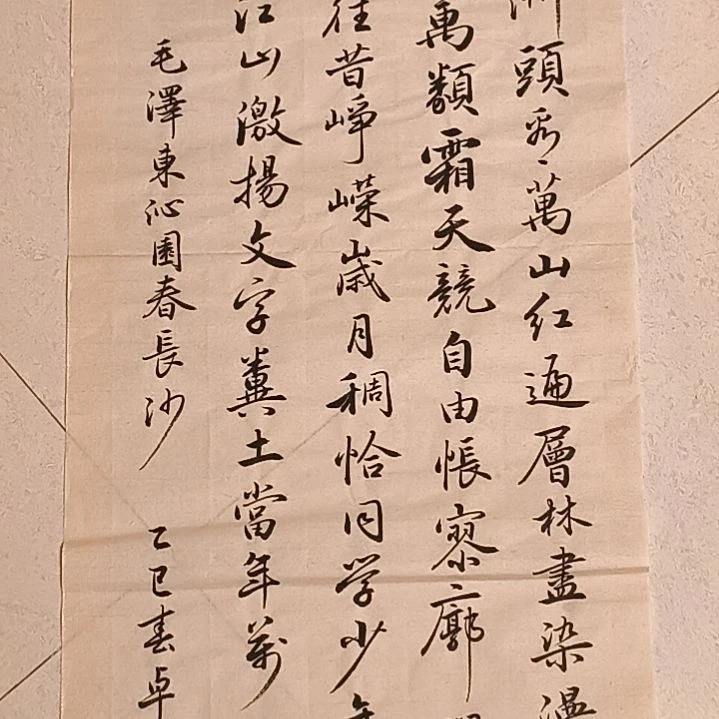 頭看萬山红遍層林盡染漫
萬類霜天競自由悵寥廓
往昔崢嶸歲月稠恰同学少年
江山激揚文字糞土當年萬
毛澤東沁園春長沙 乙巳春卓